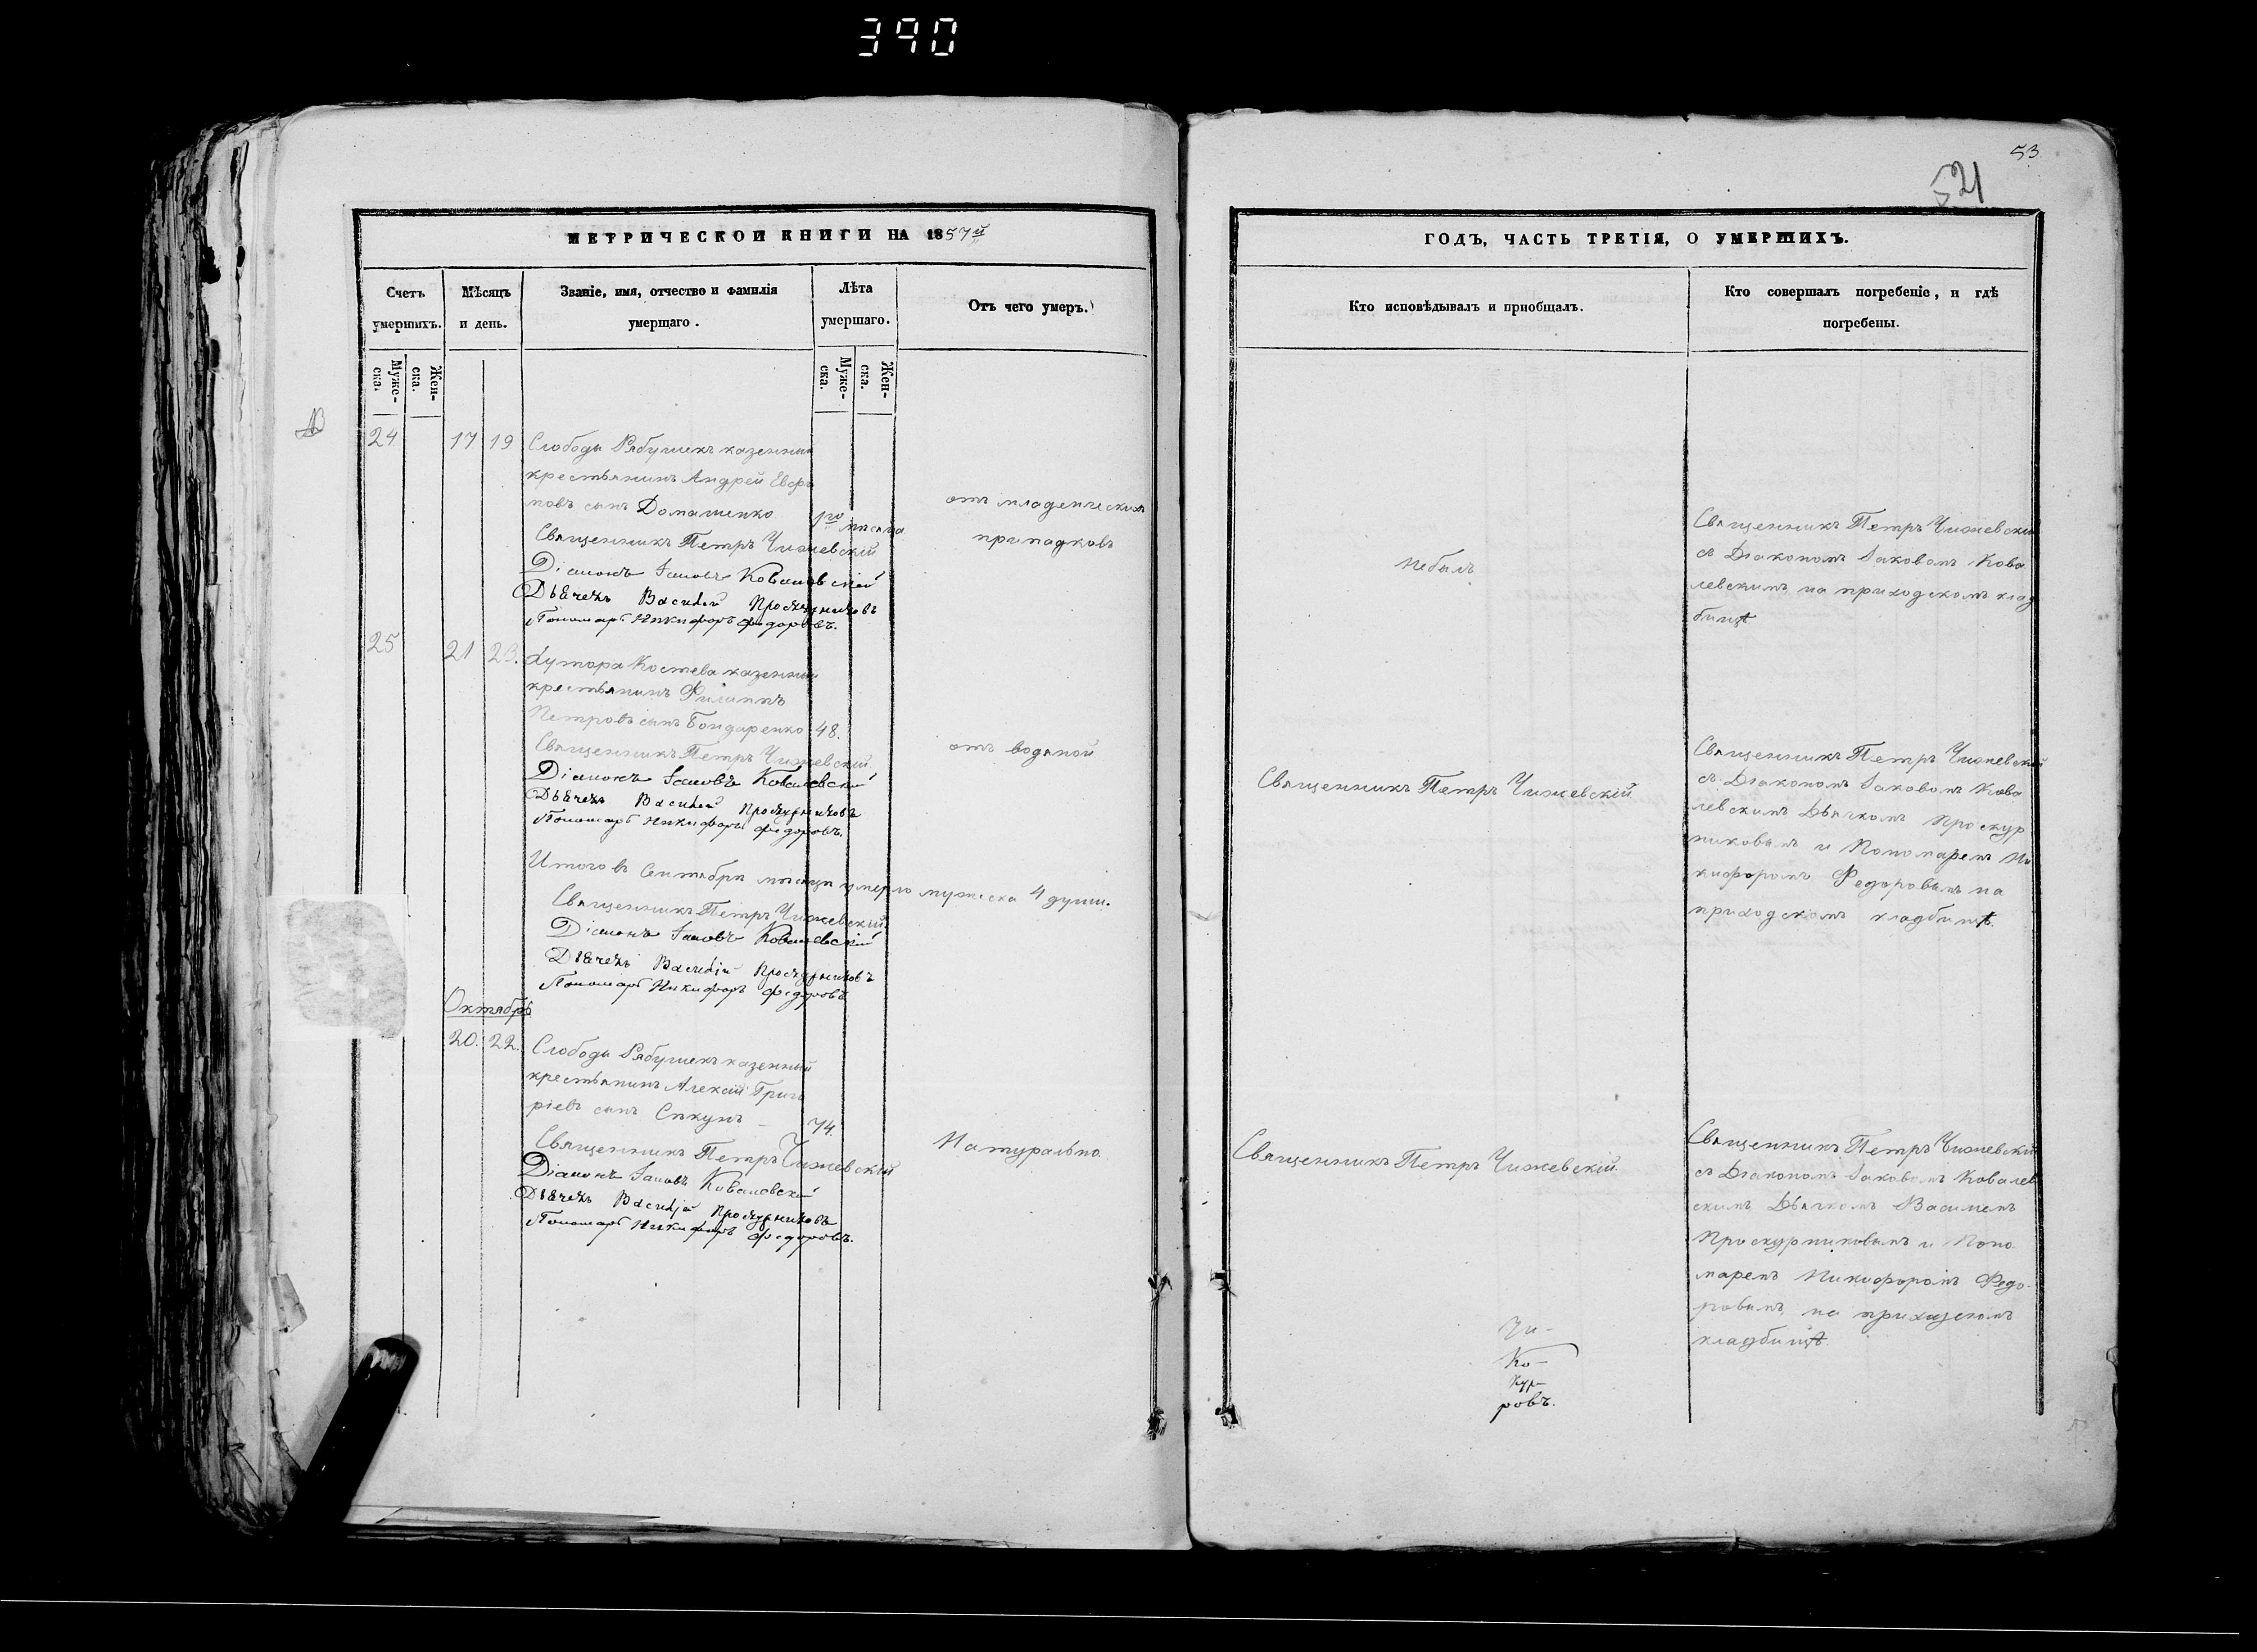 390
МЕТРИЧЕСКОЙ КНИГИ НА 1857й
Счетъ умершихъ.
Мѣсяцъ и день.
Званіе, имя, отчество и фамилія умершаго.
Лѣта умершаго.
Отъ чего умеръ.
Мужеска.
Женска.
Мужеска.
Женска.
24
17
19
Слободы Рябушекъ казенный
крестьянинъ Андрей
сынъ Домашенко
Священникъ Петръ Чижевскій
Діаконъ Іаковъ Ковалевскій
Дьячекъ Василій Проскурниковъ
Пономарь Никифоръ Федоровъ.
1го мѣсяца
отъ младенческихъ
припадковъ
25
21
23.
Хутора Костева казенный
крестьянинъ Филиппъ
Петровъ сынъ Бондаренко
48.
Священникъ Петръ Чижевскій
Діаконъ Іаковъ Ковалевскій
Дьячекъ Василій Проскурниковъ
Пономарь Никифоръ Федоровъ.
отъ водяной
Итого въ Сентябрѣ мѣсяцѣ умерло мужеска 4 души.
Священникъ Петръ Чижевскій
Діаконъ Іаковъ Ковалевскій
Дьячекъ Василій Проскурниковъ
Пономарь Никифоръ Федоровъ
Октябрь
20.
22.
Слободы Рябушекъ казенный
крестьянинъ Алексій Григо
ріевъ сынъ
74.
Священникъ Петръ Чижевскій
Діаконъ Іаковъ Ковалевскій
Дьячекъ Василій Проскурниковъ
Пономарь Никифоръ Федоровъ.
Натурально
53
521
ГОДЪ, ЧАСТЬ ТРЕТІЯ, О УМЕРШИХЪ.
Кто исповѣдывалъ и пріобщалъ.
Кто совершалъ погребеніе, и гдѣ
погребены.
Небылъ
Священникъ Петръ Чижевскій
съ Діакономъ Іаковомъ Кова
левскимъ на приходскомъ клад
бищѣ
Священникъ Петръ Чижевскій
Священникъ Петръ Чижевскій
съ Діакономъ Іаковомъ Кова
левскимъ Дьячкомъ Проскур
никовымъ и Пономаремъ Ни
кифоромъ Федоровымъ на
приходскомъ кладбищѣ.
Священникъ Петръ Чижевскій
Священникъ Петръ Чижевскій
съ Діакономъ Іаковомъ Ковалев
скимъ Дьячкомъ Василіемъ
Проскурниковымъ и Поно
маремъ Никифоромъ Федо-
ровымъ, на приходскомъ
кладбищѣ
Чи-
Ко-
кур-
ровъ.